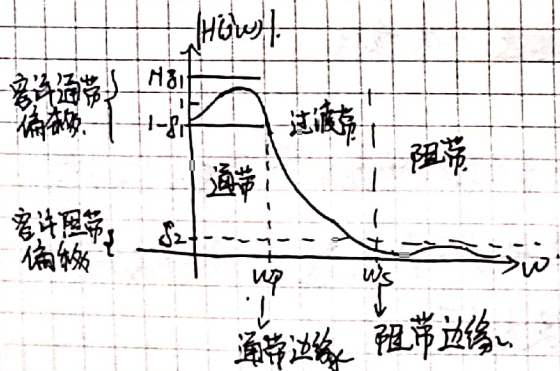 |H(jω)|
容许通带
偏移
1+δ1
1
1-δ1
过渡带
阻带
通带
容许阻带
偏移
δ2
ωp
ωs
ω
通带边缘
阻带边缘